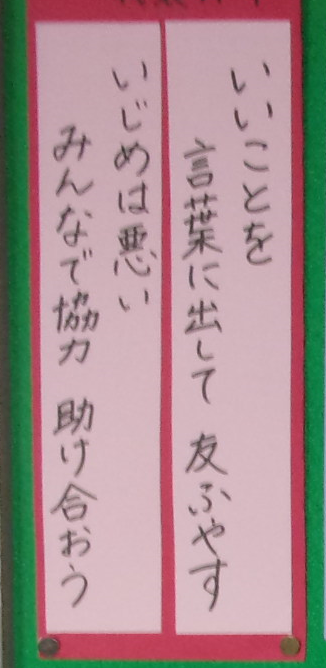 いいことを
言葉に出して 友ふやす
いじめは悪い
みんなで協力 助け合おう